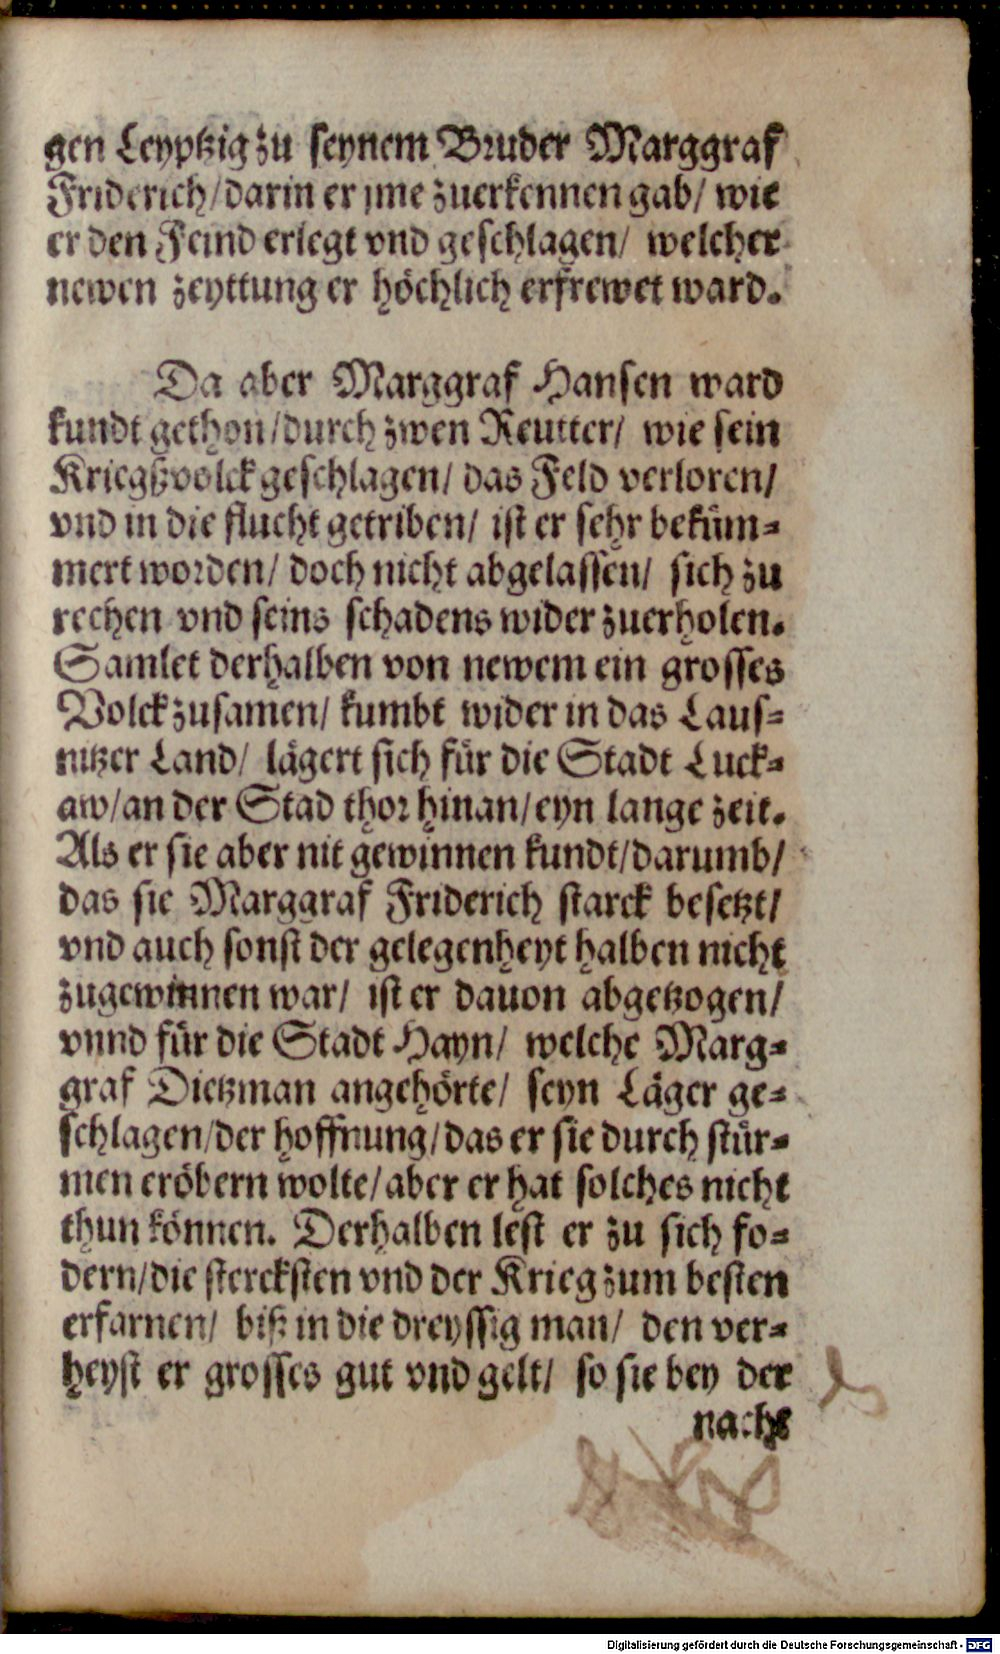 gen Leyptzig zu seynem Bruder Marggraf
Friderich/ darin er jme zuerkennen gab/ wie
er den Feind erlegt vnd geschlagen/ welcher
newen zeyttung er höchlich erfrewet ward.
Da aber Marggraf Hansen ward
kundt gethon/ durch zwen Reutter/ wie sein
Kriegßvolck geschlagen/ das Feld verloren/
vnd in die flucht getriben/ ist er sehr beküm-
mert worden/ doch nicht abgelassen/ sich zu
rechen vnd seins schadens wider zuerholen.
Samlet derhalben von newem ein grosses
Volck zusamen/ kumbt wider in das Laus-
nitzer Land/ lägert sich für die Stadt Luck-
aw/ an der Stad thor hinan/ eyn lange zeit.
Als er sie aber nit gewinnen kundt/ darumb/
das sie Marggraf Friderich starck besetzt/
vnd auch sonst der gelegenheyt halben nicht
zugewinnen war/ ist er dauon abgetzogen/
vnnd für die Stadt Hayn/ welche Marg-
graf Dietzman angehörte/ seyn Läger ge-
schlagen/ der hoffnung/ das er sie durch stür-
men eröbern wolte/ aber er hat solches nicht
thun können. Derhalben lest er zu sich fo-
dern/ die stercksten vnd der Krieg zum besten
erfarnen/ biß in die dreyssig man/ den ver-
heyst er grosses gut vnd gelt/ so sie bey der
nachs
Digitalisierung gefördert durch die Deutsche Forschungsgemeinschaft - DFG